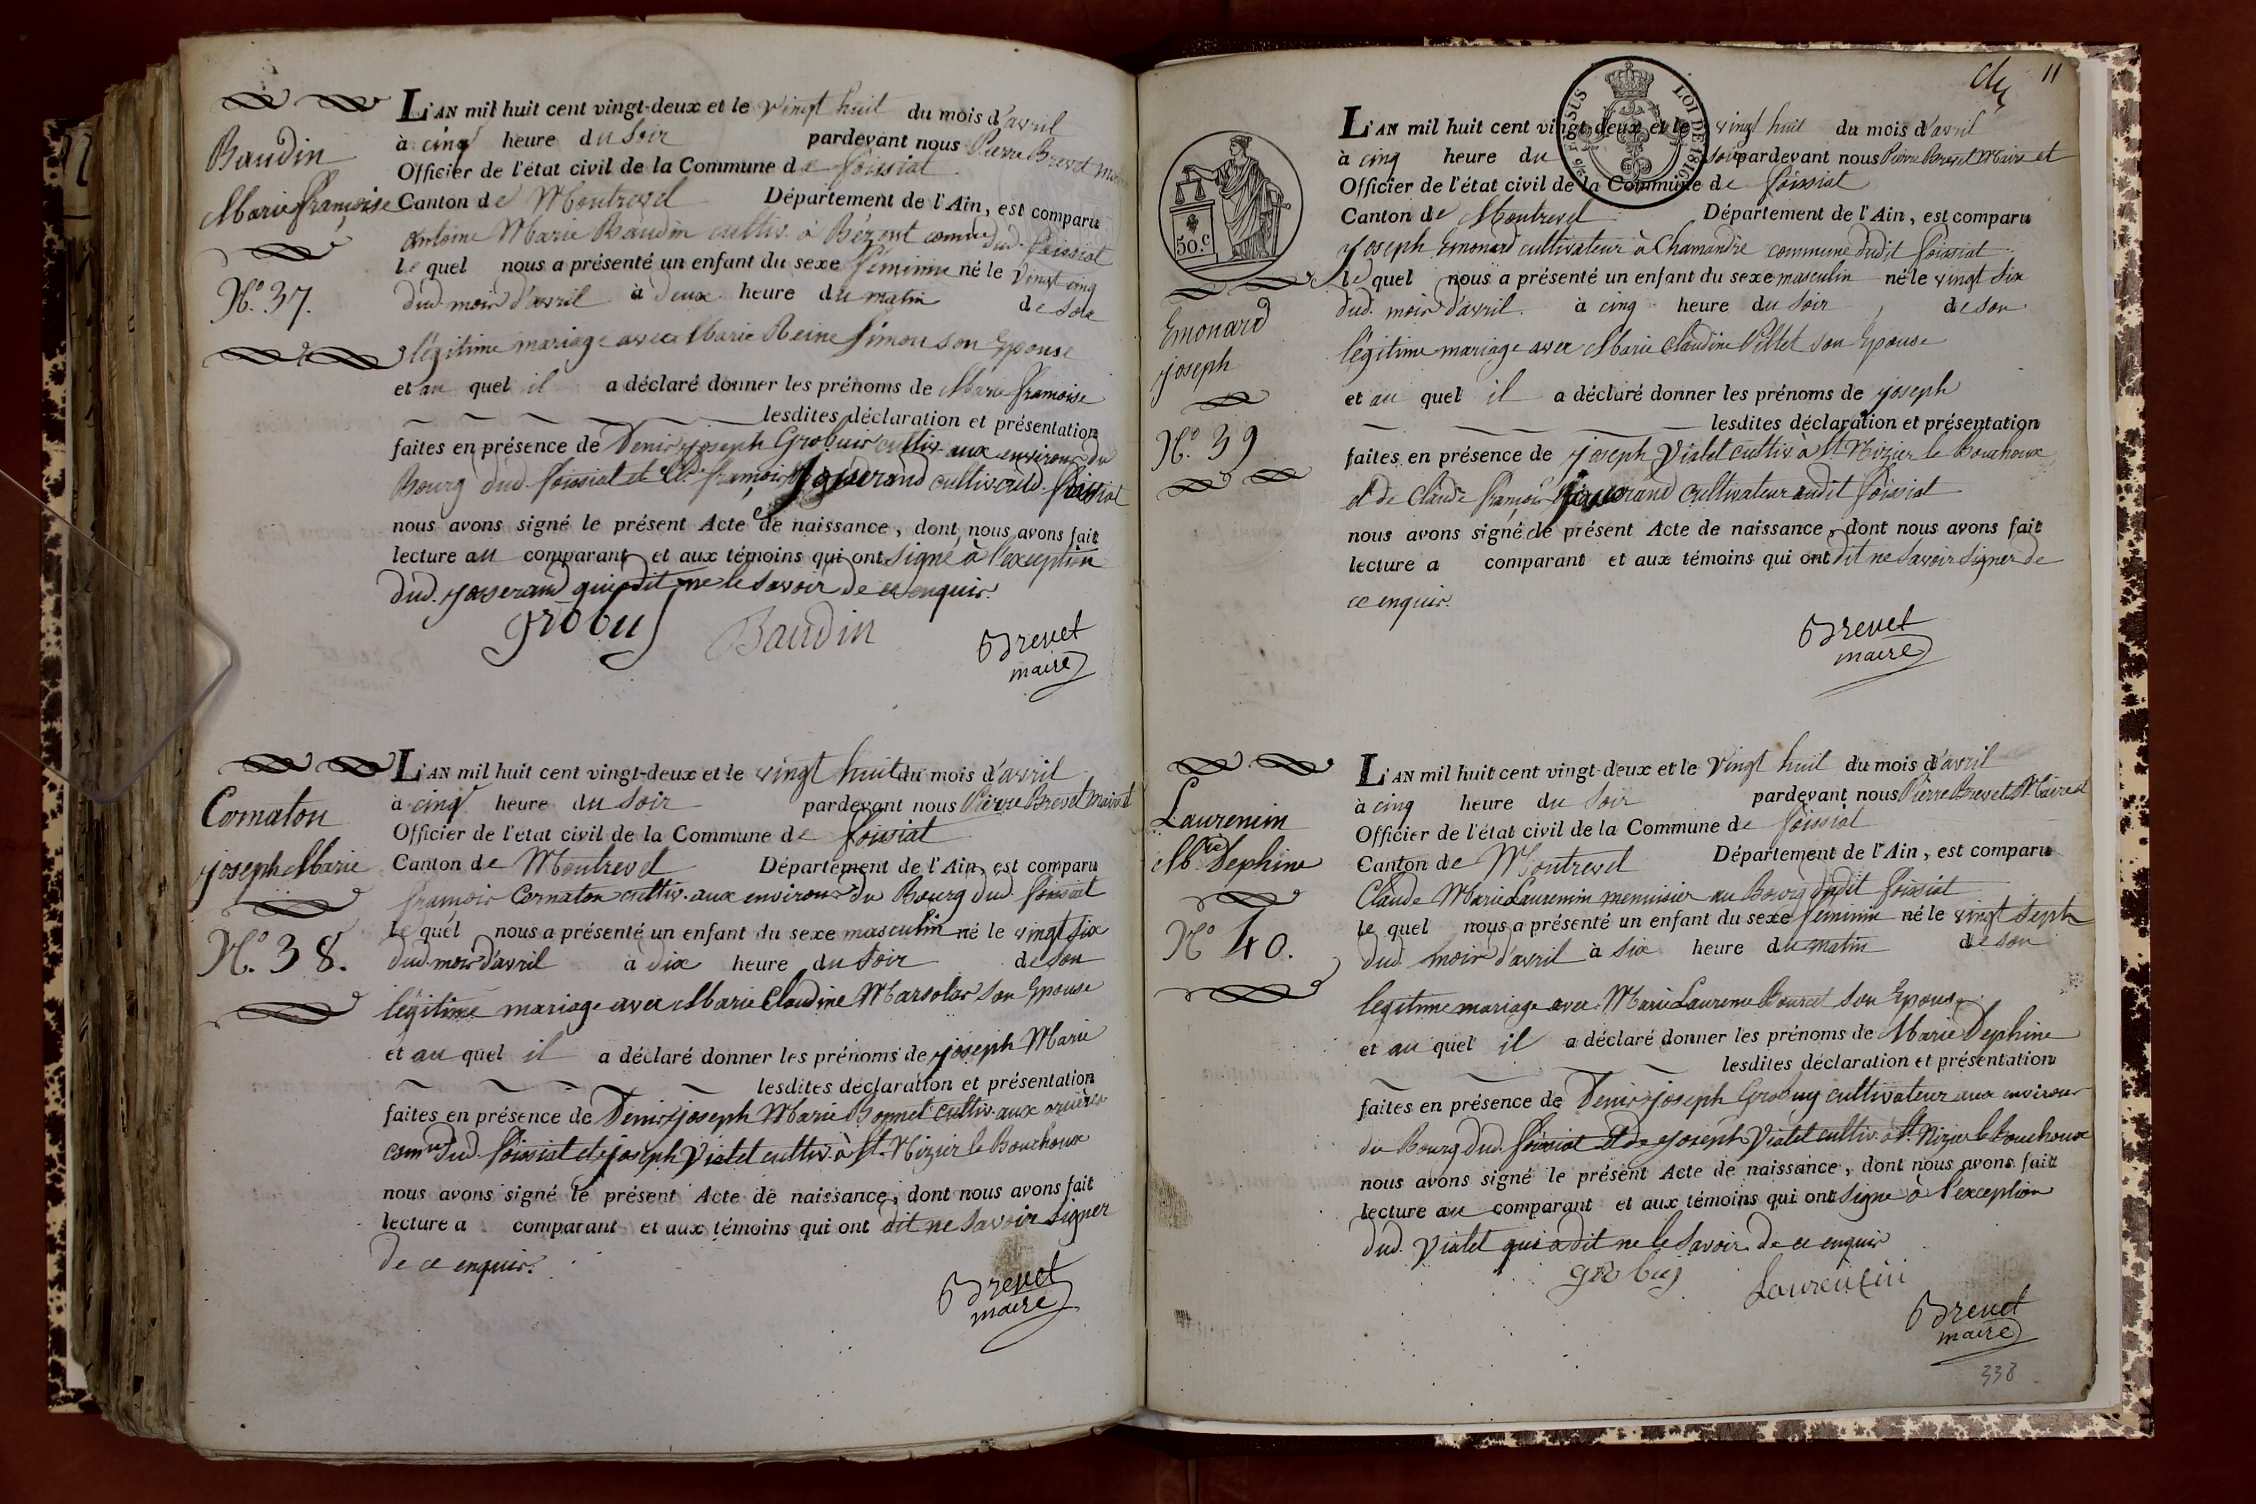 Baudin
Marie françoise
N.º 37.
L'AN mil huit cent vingt-deux et le vingt huit du mois d'avril
à cinq heure du soir pardevant nous Pierre Brevet Maire
Officier de l'état civil de la Commune de foissiat
Canton de Montrevel Département de l'Ain, est comparu
antoine Marie Baudin cultiv. à Bézent comne dud. foissiat
le quel nous a présenté un enfant du sexe féminin né le vingt cinq
dud. mois d'avril à deux heure du matin de son
légitime mariage avec Marie Reine Simon son Epouse
et au quel il a déclaré donner les prénoms de Marie françoise
lesdites déclaration et présentation
faites en présence de Denis joseph Grobuis cultiv. aux environs du
Bourg dud. foissiat et Cl.de françois josserand cultiv. aud. foissiat
nous avons signé le présent Acte de naissance, dont nous avons fait
lecture au comparant et aux témoins qui ont signé à l'exception
dud. josserand qui a dit ne le savoir de ce enquis.
grobuy Baudin Brevet
maire
Cornaton
joseph Marie
N.º 38.
L'AN mil huit cent vingt-deux et le vingt huit du mois d'avril
à cinq heure du soir pardevant nous Pierre Brevet Maire et
Officier de l'état civil de la Commune de foissiat
Canton de Montrevel Département de l'Ain, est comparu
françois Cornaton cultiv. aux environs du Bourg dud. foissiat
le quel nous a présenté un enfant du sexe masculin né le vingt six
dud. mois d'avril à dix heure du soir de son
légitime mariage avec Marie Claudine Marsolas son Epouse
et au quel il a déclaré donner les prénoms de joseph Marie
lesdites déclaration et présentation
faites en présence de Denis joseph Marie Bonnet cultiv. aux
comne dud. foissiat et joseph Vialet cultiv. à St. Nizier le Bouchoux
nous avons signé le présent Acte de naissance, dont nous avons fait
lecture a comparant et aux témoins qui ont dit ne savoir signer
de ce enquis.
Brevet
maire
11
50.c
LOI DE 1816
Emonard
joseph
N.º 39
L'AN mil huit cent vingt-deux et le vingt huit du mois d'avril
à cinq heure du soir pardevant nous Pierre Brevet Maire et
Officier de l'état civil de la Commune de foissiat
Canton de Montrevel Département de l'Ain, est comparu
joseph Emonard cultivateur à Chamandre commune dudit foissiat
le quel nous a présenté un enfant du sexe masculin né le vingt six
dud. mois d'avril. à cinq heure du soir de son
légitime mariage avec Marie Claudine Pillet son Epouse
et au quel il a déclaré donner les prénoms de joseph
lesdites déclaration et présentation
faites en présence de joseph Vialet cultiv. à St. Nizier le Bouchoux
et de Claude françois josserand cultivateur audit foissiat
nous avons signé le présent Acte de naissance, dont nous avons fait
lecture a comparant et aux témoins qui ont dit ne savoir signer de
ce enquis.
Brevet
maire
Laurencin
M.ie Dephine
N.º 40.
L'AN mil huit cent vingt-deux et le vingt huit du mois d'avril
à cinq heure du soir pardevant nous Pierre Brevet Maire et
Officier de l'état civil de la Commune de foissiat
Canton de Montrevel Département de l'Ain, est comparu
Claude Marie Laurencin menuisier au Bourg dudit foissiat
le quel nous a présenté un enfant du sexe féminin né le vingt septe
dud. mois d'avril à six heure du matin de son
légitime mariage avec Marie Laurence Bourcet son Epouse
et au quel il a déclaré donner les prénoms de Marie Dephine
lesdites déclaration et présentation
faites en présence de Denis joseph Grobuy cultivateur aux environs
du Bourg dud. foissiat et de joseph Vialet cultiv. à St. Nizier le Bouchoux
nous avons signé le présent Acte de naissance, dont nous avons fait
lecture au comparant et aux témoins qui ont signé à l'exception
dud. Vialet qui a dit ne le savoir de ce enquis
grobuy Laurencin
Brevet
maire
338